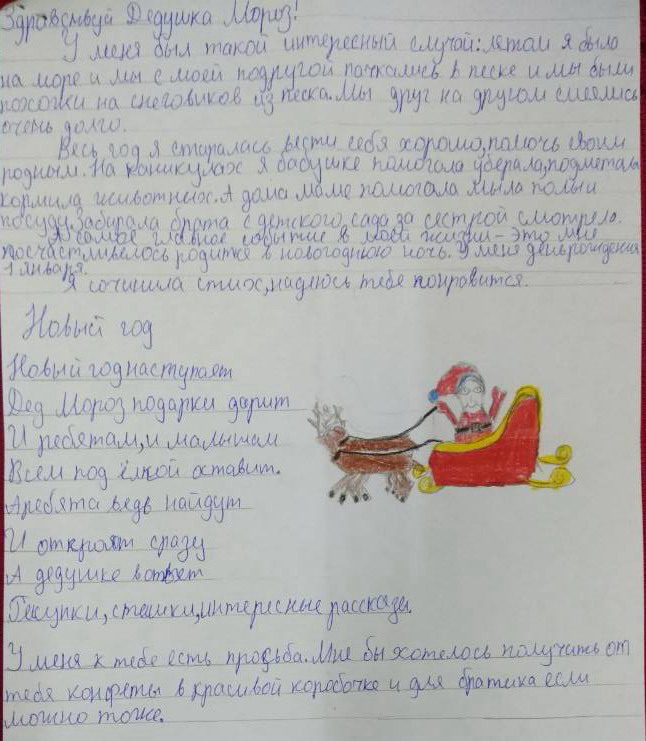 Здравствуй Дедушка Мороз!
У меня был такой интересный случай: летом я была
на море и мы с моей подругой пачкались в песке и мы были
похожи на снеговиков из песка. Мы друг на другом смеялись
очень долго.
Весь год я старалась вести себя хорошо, помочь своим
родным. На каникулах я бабушке помогала уберала, подметала
кормила животных. А дома маме помогала мыла полы и
посуду, забирала брата с детского сада, за сестрой смотрела.
А самое главное событие в моей жизни - это мне
посчастливелось родится в новогоднюю ночь. У меня день рождения
1 января.
Я сочинила стих, надеюсь тебе понравится.
Новый год
Новый год наступает
Дед Мороз подарки дарит
И ребятам, и малышам
Всем под ёлкой оставит.
А ребята ведь найдут
И откроют сразу
А дедушке в ответ
Рисунки, стешки, интересные рассказы.
У меня к тебе есть просьба. Мне бы хотелось получить от
тебя конфеты в красивой коробочке и для братика если
можно тоже.